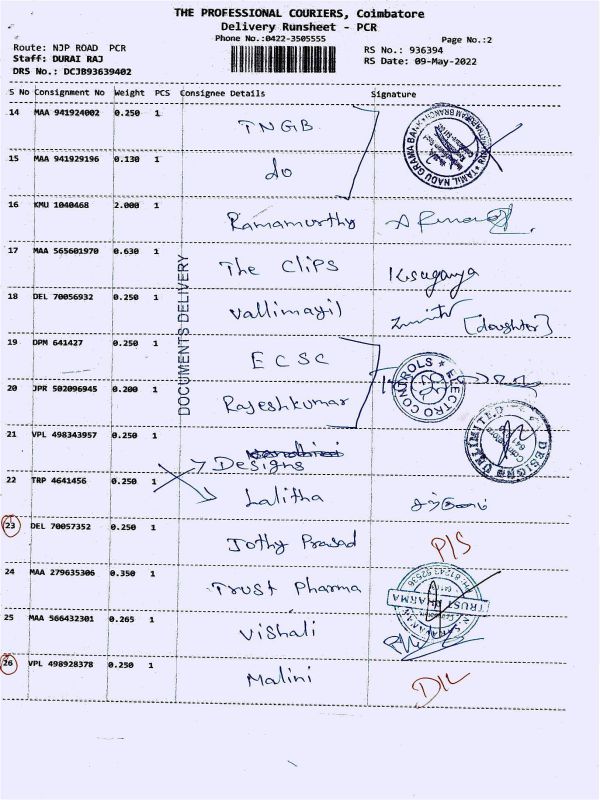 THE PROFESSIONAL COURIERS, Coimbatore
Delivery Runsheet - PCR
Phone No.:0422-3505555
Page No.:2
Route: NJP ROAD PCR
RS No.: 936394
Staff: DURAI RAJ
RS Date: 09-May-2022
DRS No.: DCJB93639402
S No Consignment No Weight PCS Consignee Details Signature
14 MAA 941924002 0.250 1 TNGB
15 MAA 941929196 0.130 1 do
16 KMU 1040468 2.000 1 Ramamurthy
17 MAA 565601970 0.630 1 The Clips K.Suganya
18 DEL 70056932 0.250 1 Vallimayil [daughter]
DOCUMENTS DELIVERY
19 DPM 641427 0.250 1 ECSC
20 JPR 502096945 0.200 1 Rajeshkumar
ELECTRO CONTROLS
21 VPL 498343957 0.250 1 Designs
DESIGNS UNLIMITED
22 TRP 4641456 0.250 1 Lalitha
23 DEL 70057352 0.250 1 Jothy Prasad P/S
24 MAA 279635306 0.350 1 Trust Pharma
TRUST PHARMA
25 MAA 566432301 0.265 1 Vishali
26 VPL 498928378 0.250 1 Malini D/L